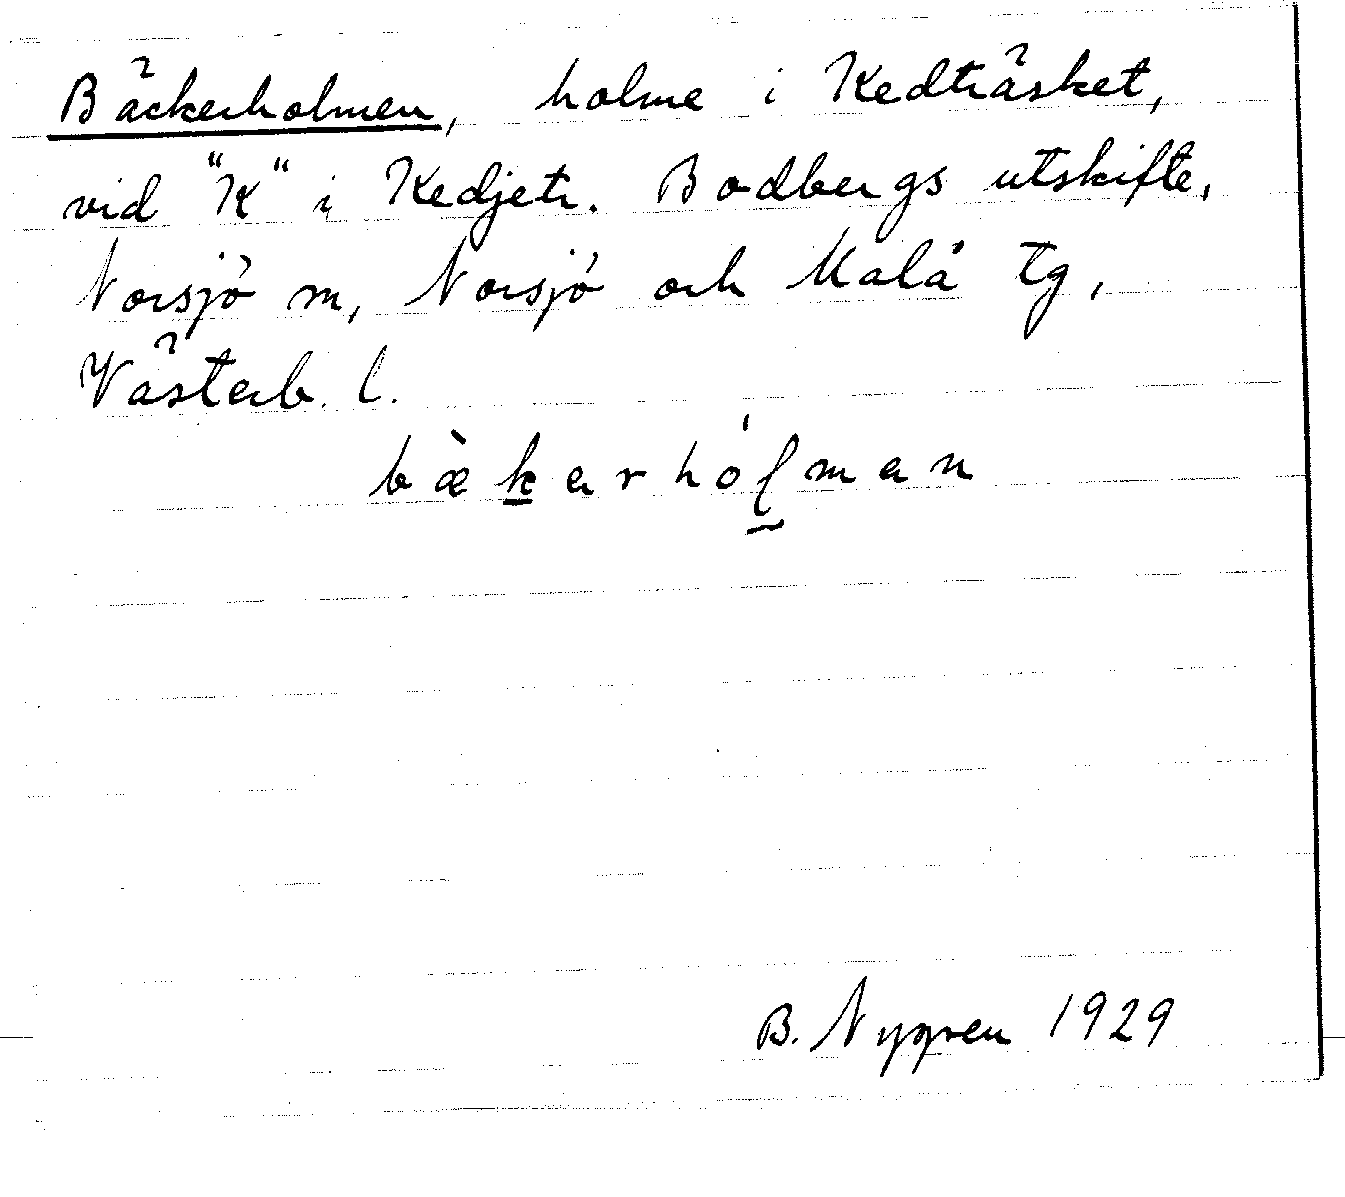 Bäckerholmen, holme i Kedträsket,
vid "K" i Kedjetr. Bodbergs utskifte,
Norsjö sn, Norsjö och Malå tg,
Västerb. l.
bæ̀kerhólmen
B. Nygren 1929